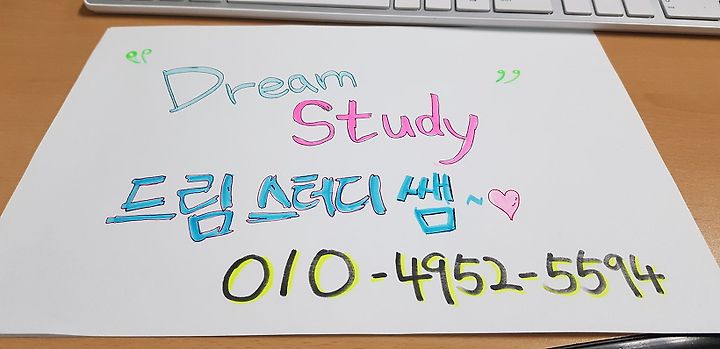 "Dream
Study"
드림 스터디 쌤~♡
010-4952-5594